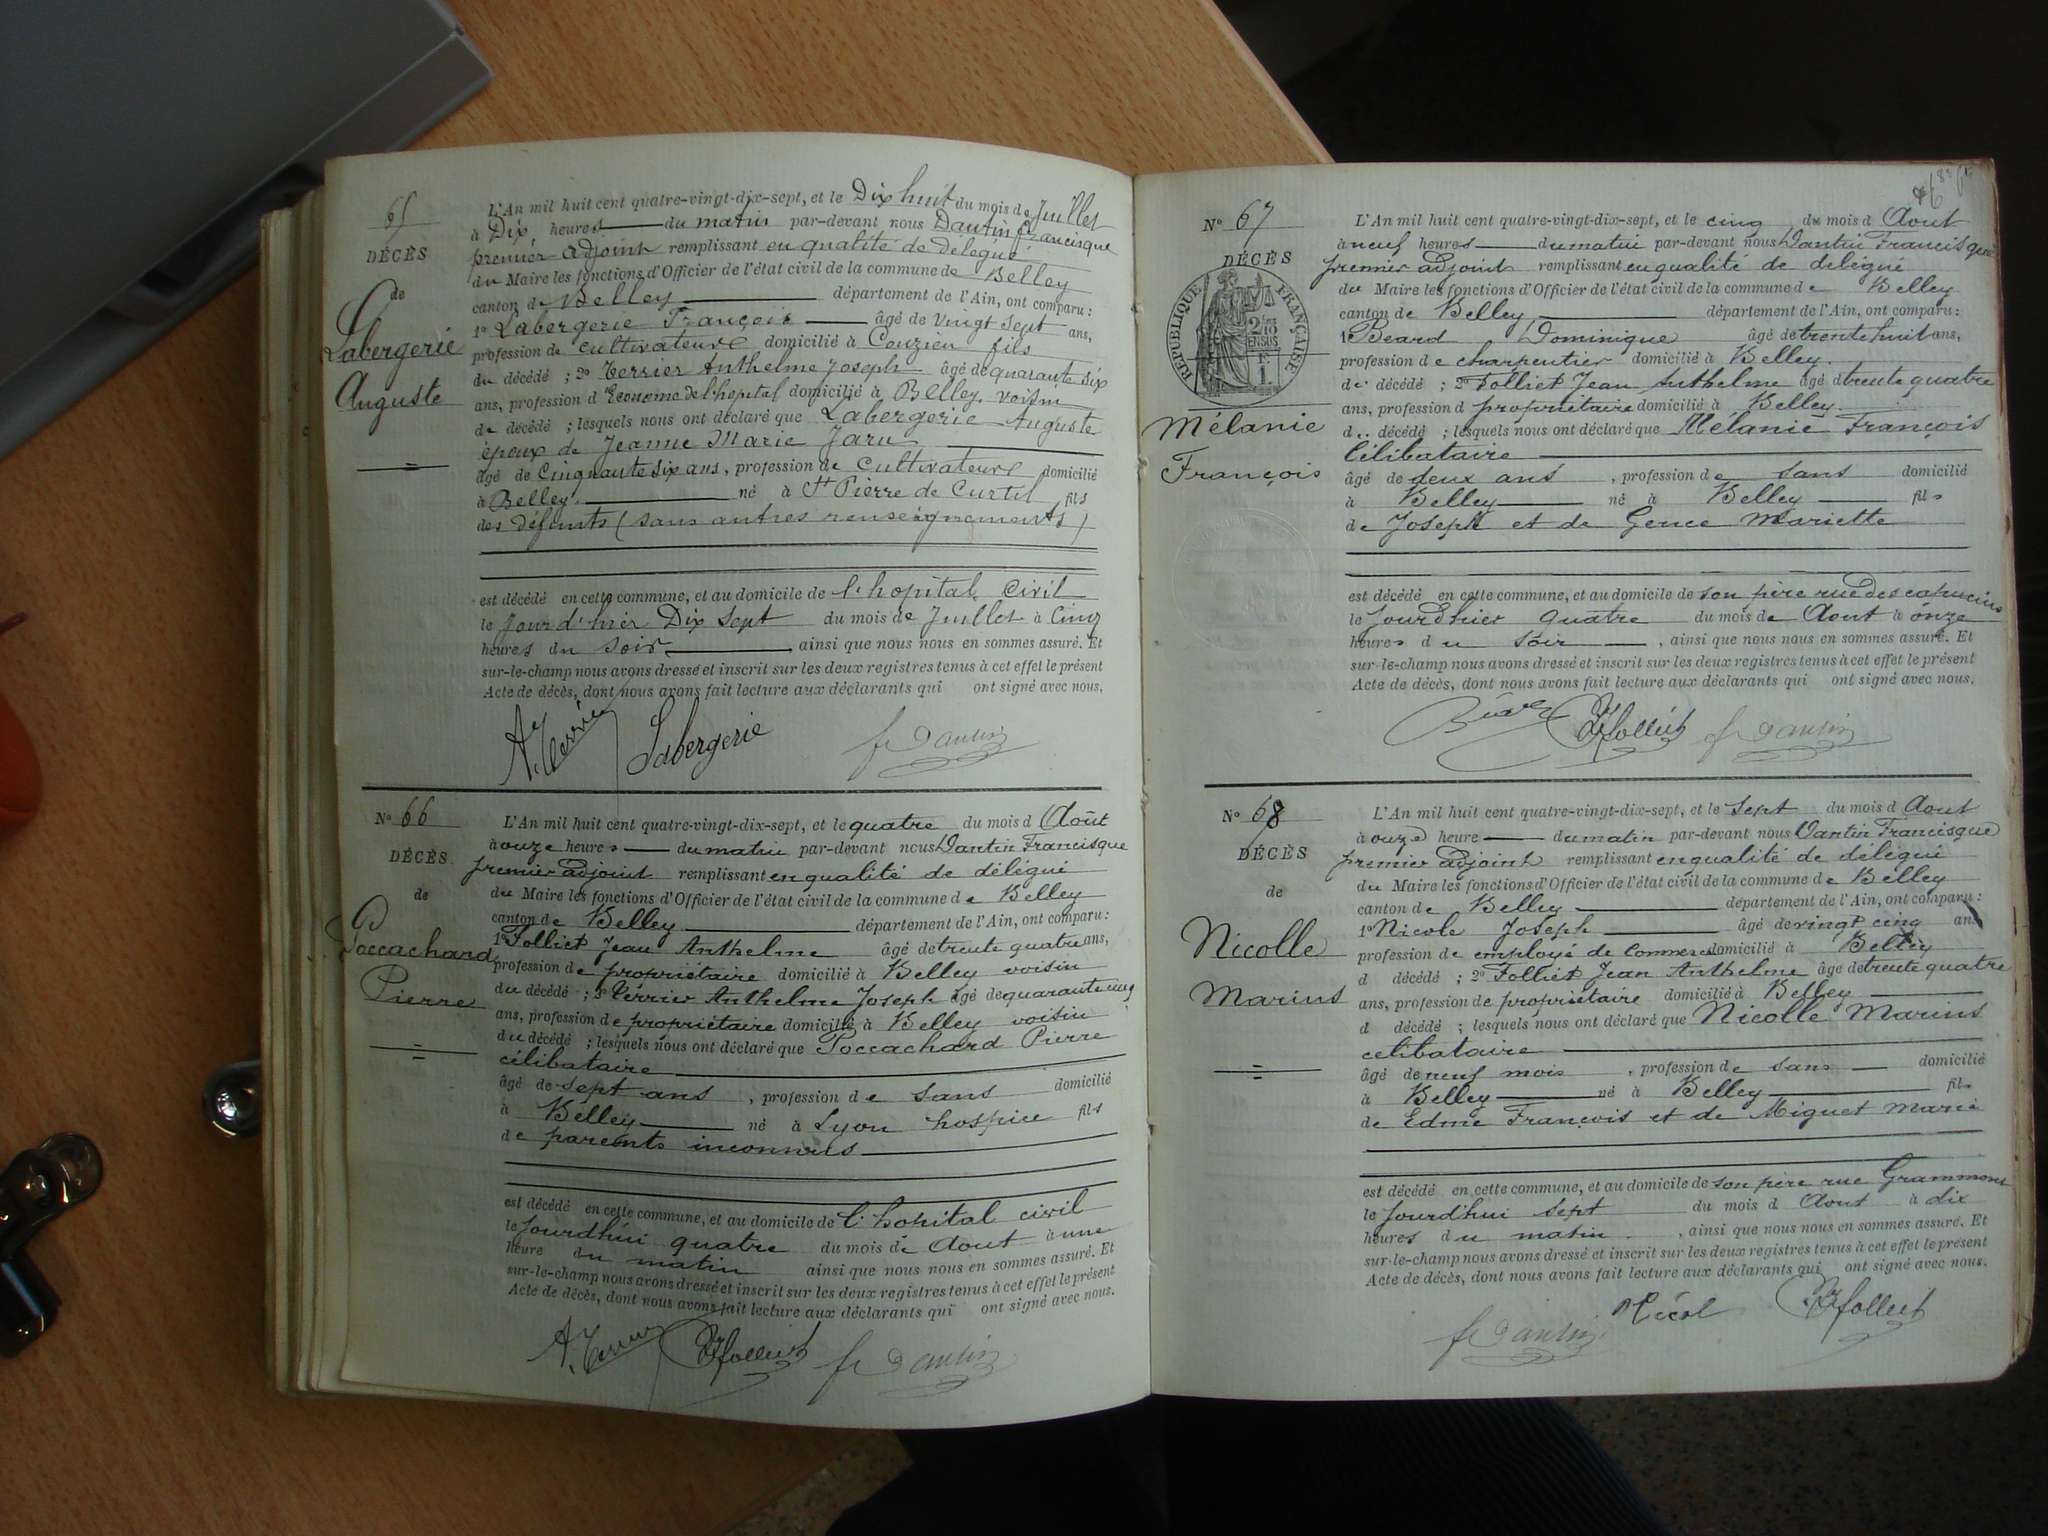 65
DÉCÈS
de
Labergerie
Auguste
L'An mil huit cent quatre-vingt-dix-sept, et le Dix huit du mois de Juillet
à Dix heures du matin par-devant nous Dantin Francisque
premier adjoint remplissant en qualité de délégué
du Maire les fonctions d'Officier de l'état civil de la commune de Belley
canton de Belley département de l'Ain, ont comparu :
1o Labergerie François âgé de vingt sept ans,
profession de cultivateur domicilié à Couzieu fils
du décédé ; 2o Terrier Anthelme Joseph âgé de quarante six
ans, profession d'Econome de l'hopital domicilié à Belley voisin
de décédé ; lesquels nous ont déclaré que Labergerie Auguste
époux de Jeanne Marie Jaru
âgé de Cinquante six ans, profession de cultivateur domicilié
à Belley né à St Pierre de Curtil fils
des défunts (sans autres renseignements)
est décédé en cette commune, et au domicile de l'hopital Civil
le jour d'hier Dix sept du mois de Juillet à Cinq
heures du soir ainsi que nous nous en sommes assuré. Et
sur-le-champ nous avons dressé et inscrit sur les deux registres tenus à cet effet le présent
Acte de décès, dont nous avons fait lecture aux déclarants qui ont signé avec nous.
A. Terrier Labergerie fr Dantin
No 66
DÉCÈS
de
Poccachard
Pierre
L'An mil huit cent quatre-vingt-dix-sept, et le quatre du mois d Août
à onze heures du matin par-devant nous Dantin Francisque
premier adjoint remplissant en qualité de délégué
du Maire les fonctions d'Officier de l'état civil de la commune de Belley
canton de Belley département de l'Ain, ont comparu :
1o Folliet Jean Anthelme âgé de trente quatre ans,
profession de propriétaire domicilié à Belley voisin
du décédé ; 2o Terrier Anthelme Joseph âgé de quarante cinq
ans, profession de propriétaire domicilié à Belley voisin
du décédé ; lesquels nous ont déclaré que Poccachard Pierre
célibataire
âgé de sept ans, profession de sans domicilié
à Belley né à Lyon hospice fils
de parents inconnus
est décédé en cette commune, et au domicile de l'hopital civil
le jourdhui quatre du mois de Aout à une
heure du matin ainsi que nous nous en sommes assuré. Et
sur-le-champ nous avons dressé et inscrit sur les deux registres tenus à cet effet le présent
Acte de décès, dont nous avons fait lecture aux déclarants qui ont signé avec nous.
A. Terrier Folliet fr Dantin
No 67
DÉCÈS
RÉPUBLIQUE FRANÇAISE
Mélanie
François
L'An mil huit cent quatre-vingt-dix-sept, et le cinq du mois d Aout
à neuf heures du matin par-devant nous Dantin Francisque
premier adjoint remplissant en qualité de délégué
du Maire les fonctions d'Officier de l'état civil de la commune de Belley
canton de Belley département de l'Ain, ont comparu :
1 Beard Dominique âgé de trente huit ans,
profession de charpentier domicilié à Belley
de décédé ; 2o Folliet Jean Anthelme âgé d trente quatre
ans, profession d propriétaire domicilié à Belley
d.. décédé ; lesquels nous ont déclaré que Mélanie François
Célibataire
âgé de deux ans, profession de sans domicilié
à Belley né à Belley fils
de Joseph et de Gence Mariette
est décédé en cette commune, et au domicile de son père rue des capucins
le jourdhier quatre du mois de Aout à onze
heures du soir, ainsi que nous nous en sommes assuré. Et
sur-le-champ nous avons dressé et inscrit sur les deux registres tenus à cet effet le présent
Acte de décès, dont nous avons fait lecture aux déclarants qui ont signé avec nous.
Folliet fr Dantin
No 68
DÉCÈS
de
Nicolle
Marius
L'An mil huit cent quatre-vingt-dix-sept, et le sept du mois d Aout
à onze heure du matin par-devant nous Dantin Francisque
premier adjoint remplissant en qualité de délégué
du Maire les fonctions d'Officier de l'état civil de la commune de Belley
canton de Belley département de l'Ain, ont comparu :
1o Nicole Joseph âgé de vingt cinq ans
profession de employé de commerce domicilié à Belley
d décédé ; 2o Folliet Jean Anthelme âgé de trente quatre
ans, profession de propriétaire domicilié à Belley
d décédé ; lesquels nous ont déclaré que Nicolle Marius
celibataire
âgé de neuf mois, profession de sans domicilié
à Belley né à Belley fils
de Edme François et de Miguet Marie
est décédé en cette commune, et au domicile de son père rue Grammont
le jourd'hui sept du mois d Aout à dix
heures du matin, ainsi que nous nous en sommes assuré. Et
sur-le-champ nous avons dressé et inscrit sur les deux registres tenus à cet effet le présent
Acte de décès, dont nous avons fait lecture aux déclarants qui ont signé avec nous.
fr Dantin Nicol Folliet